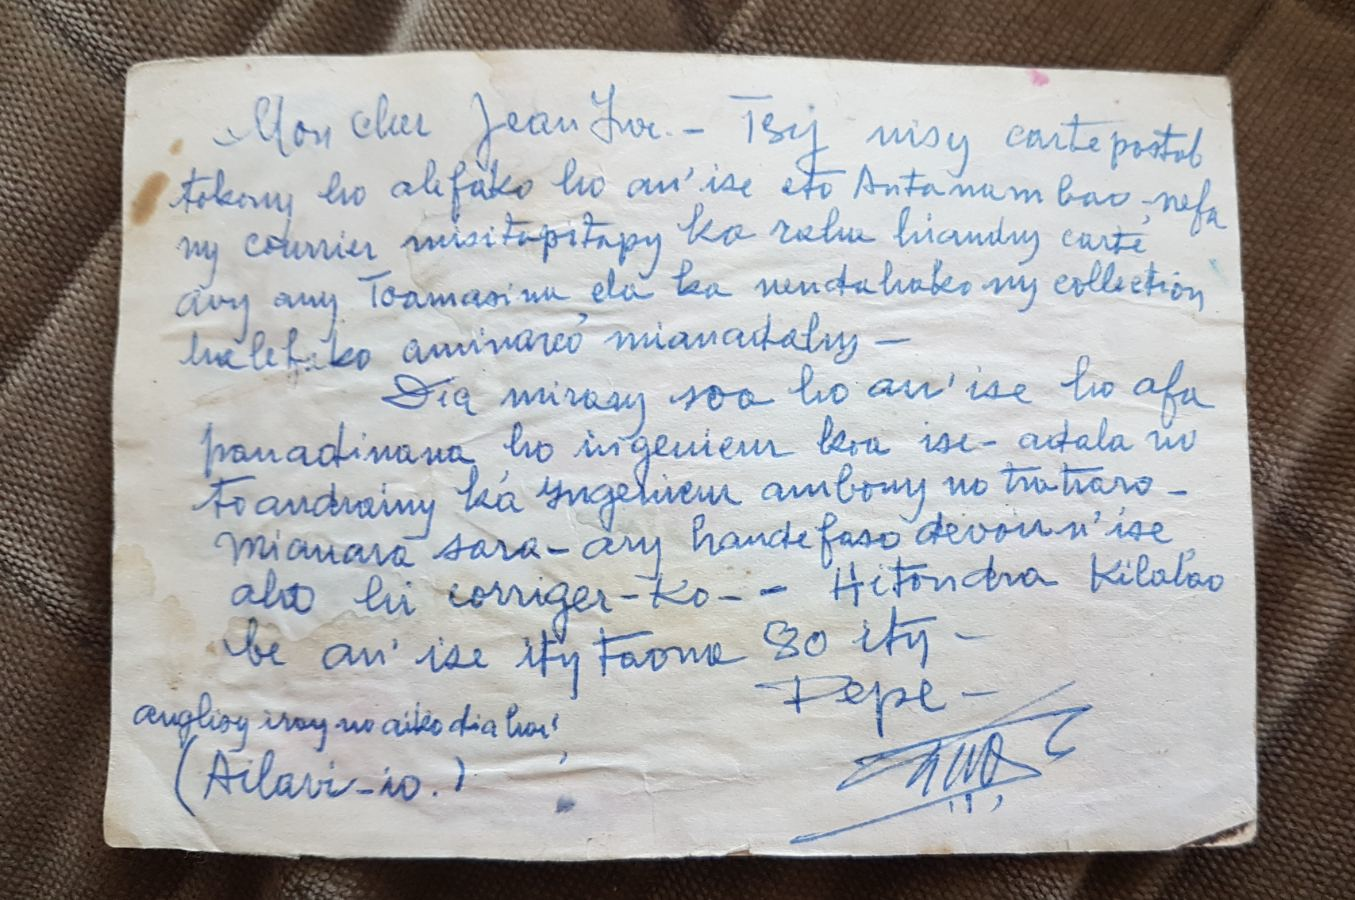 Mon cher Jean Yve. - Tsij misy carte postab
tokony ho alefako ho an'ise eto Antanambao, nefa
ny courrier misitapitapy ka raha hiandry carte
avy any Toamasina, ela ka nendahako ny collection
halefako aminareo mianadahy -
Dia mirary soa ho an'ise ho afa
panadinana ho ingenieur koa ise - adala no
toandrainy ka Yngenieur ambony no tratraro -
Mianara sara - ary handefaso devoir n'ise
aho hi corriger - Ko - - Hitondra Kilalao
be an'ise ity taona 80 ity -
Pepe -
anglisy iray no aiko dia hoe'
(Ailavi-io.)